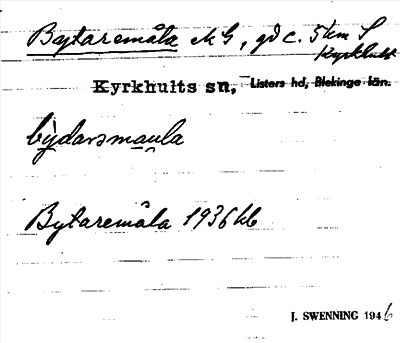 Bajtaremåla ek G, gd c. 5 km S
Kyrkhult
Kyrkhults sn, Listers hd, Blekinge län.
bỳdarsmau̯la
Bytaremåla 1936 kb
J. SWENNING 1946